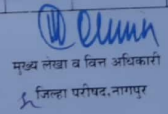 मुख्य लेखा व वित्त अधिकारी
जिल्हा परीषद, नागपुर